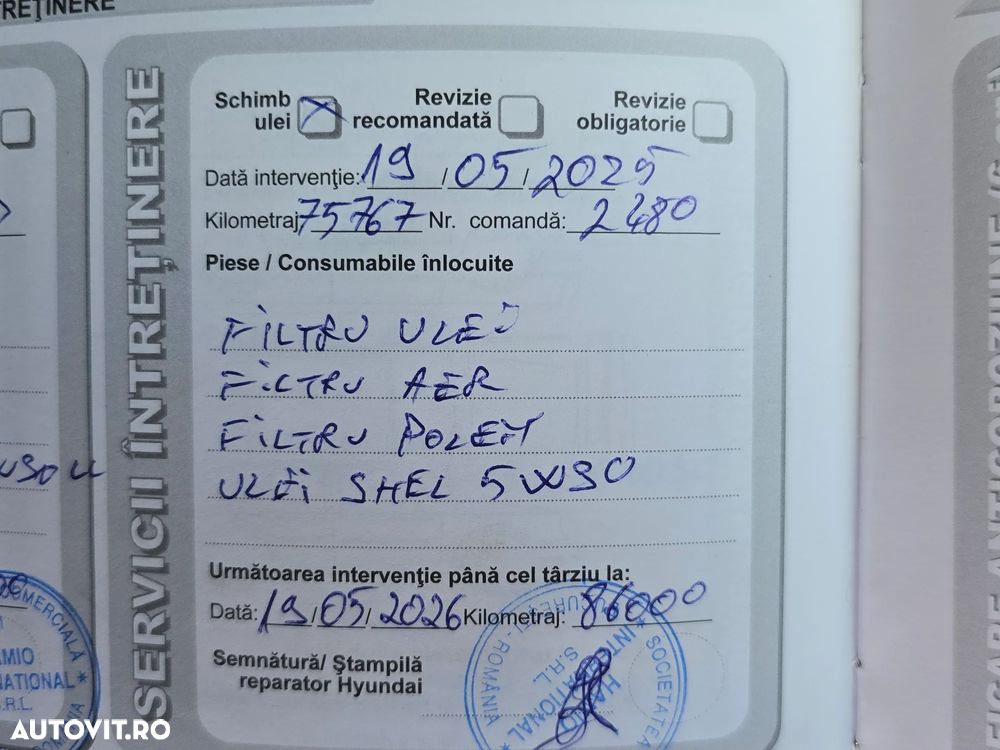 REŢINERE
SERVICII ÎNTREŢINERE
Schimb ulei
Revizie recomandată
Revizie obligatorie
Dată intervenţie: 19 / 05 / 2025
Kilometraj: 75767 Nr. comandă: 2480
Piese / Consumabile înlocuite
FILTRU ULEI
FILTRU AER
FILTRU POLEN
ULEI SHEL 5W30
Următoarea intervenţie până cel târziu la:
Dată: 19/05/2026 Kilometraj: 86000
Semnătură/ Ştampilă
reparator Hyundai
SOCIETATEA
INTERNATIONAL
S.R.L.
ROMÂNIA
COMERCIALĂ
NATIONAL
S.R.L.
AUTOVIT.RO